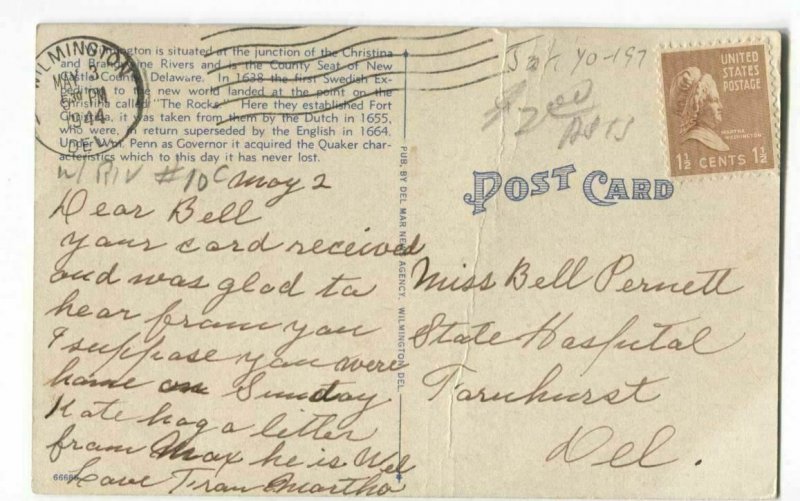 Wilmington is situated at the junction of the Christina
and Brandywine Rivers and is the County Seat of New
Castle County, Delaware. In 1638 the first Swedish Ex-
pedition to the new world landed at the point on the
Christina called "The Rocks." Here they established Fort
Christina, it was taken from them by the Dutch in 1655,
who were, in return superseded by the English in 1664.
Under Wm. Penn as Governor it acquired the Quaker char-
acteristics which to this day it has never lost.
WILMINGTON
MAY 3
PM
1944
DEL
#10c
May 2
Dear Bell
your card received
and was glad to
hear from you
I suppose you were
home on Sunday
Kate hag a litter
from Max he is Wel
Love Fran Martha
66686
PUB. BY DEL MAR NEWS AGENCY, WILMINGTON DEL.
POST CARD
UNITED
STATES
POSTAGE
MARTHA
WASHINGTON
1½ CENTS 1½
Miss Bell Pernett
State Hasputal
Farnhurst
Del.